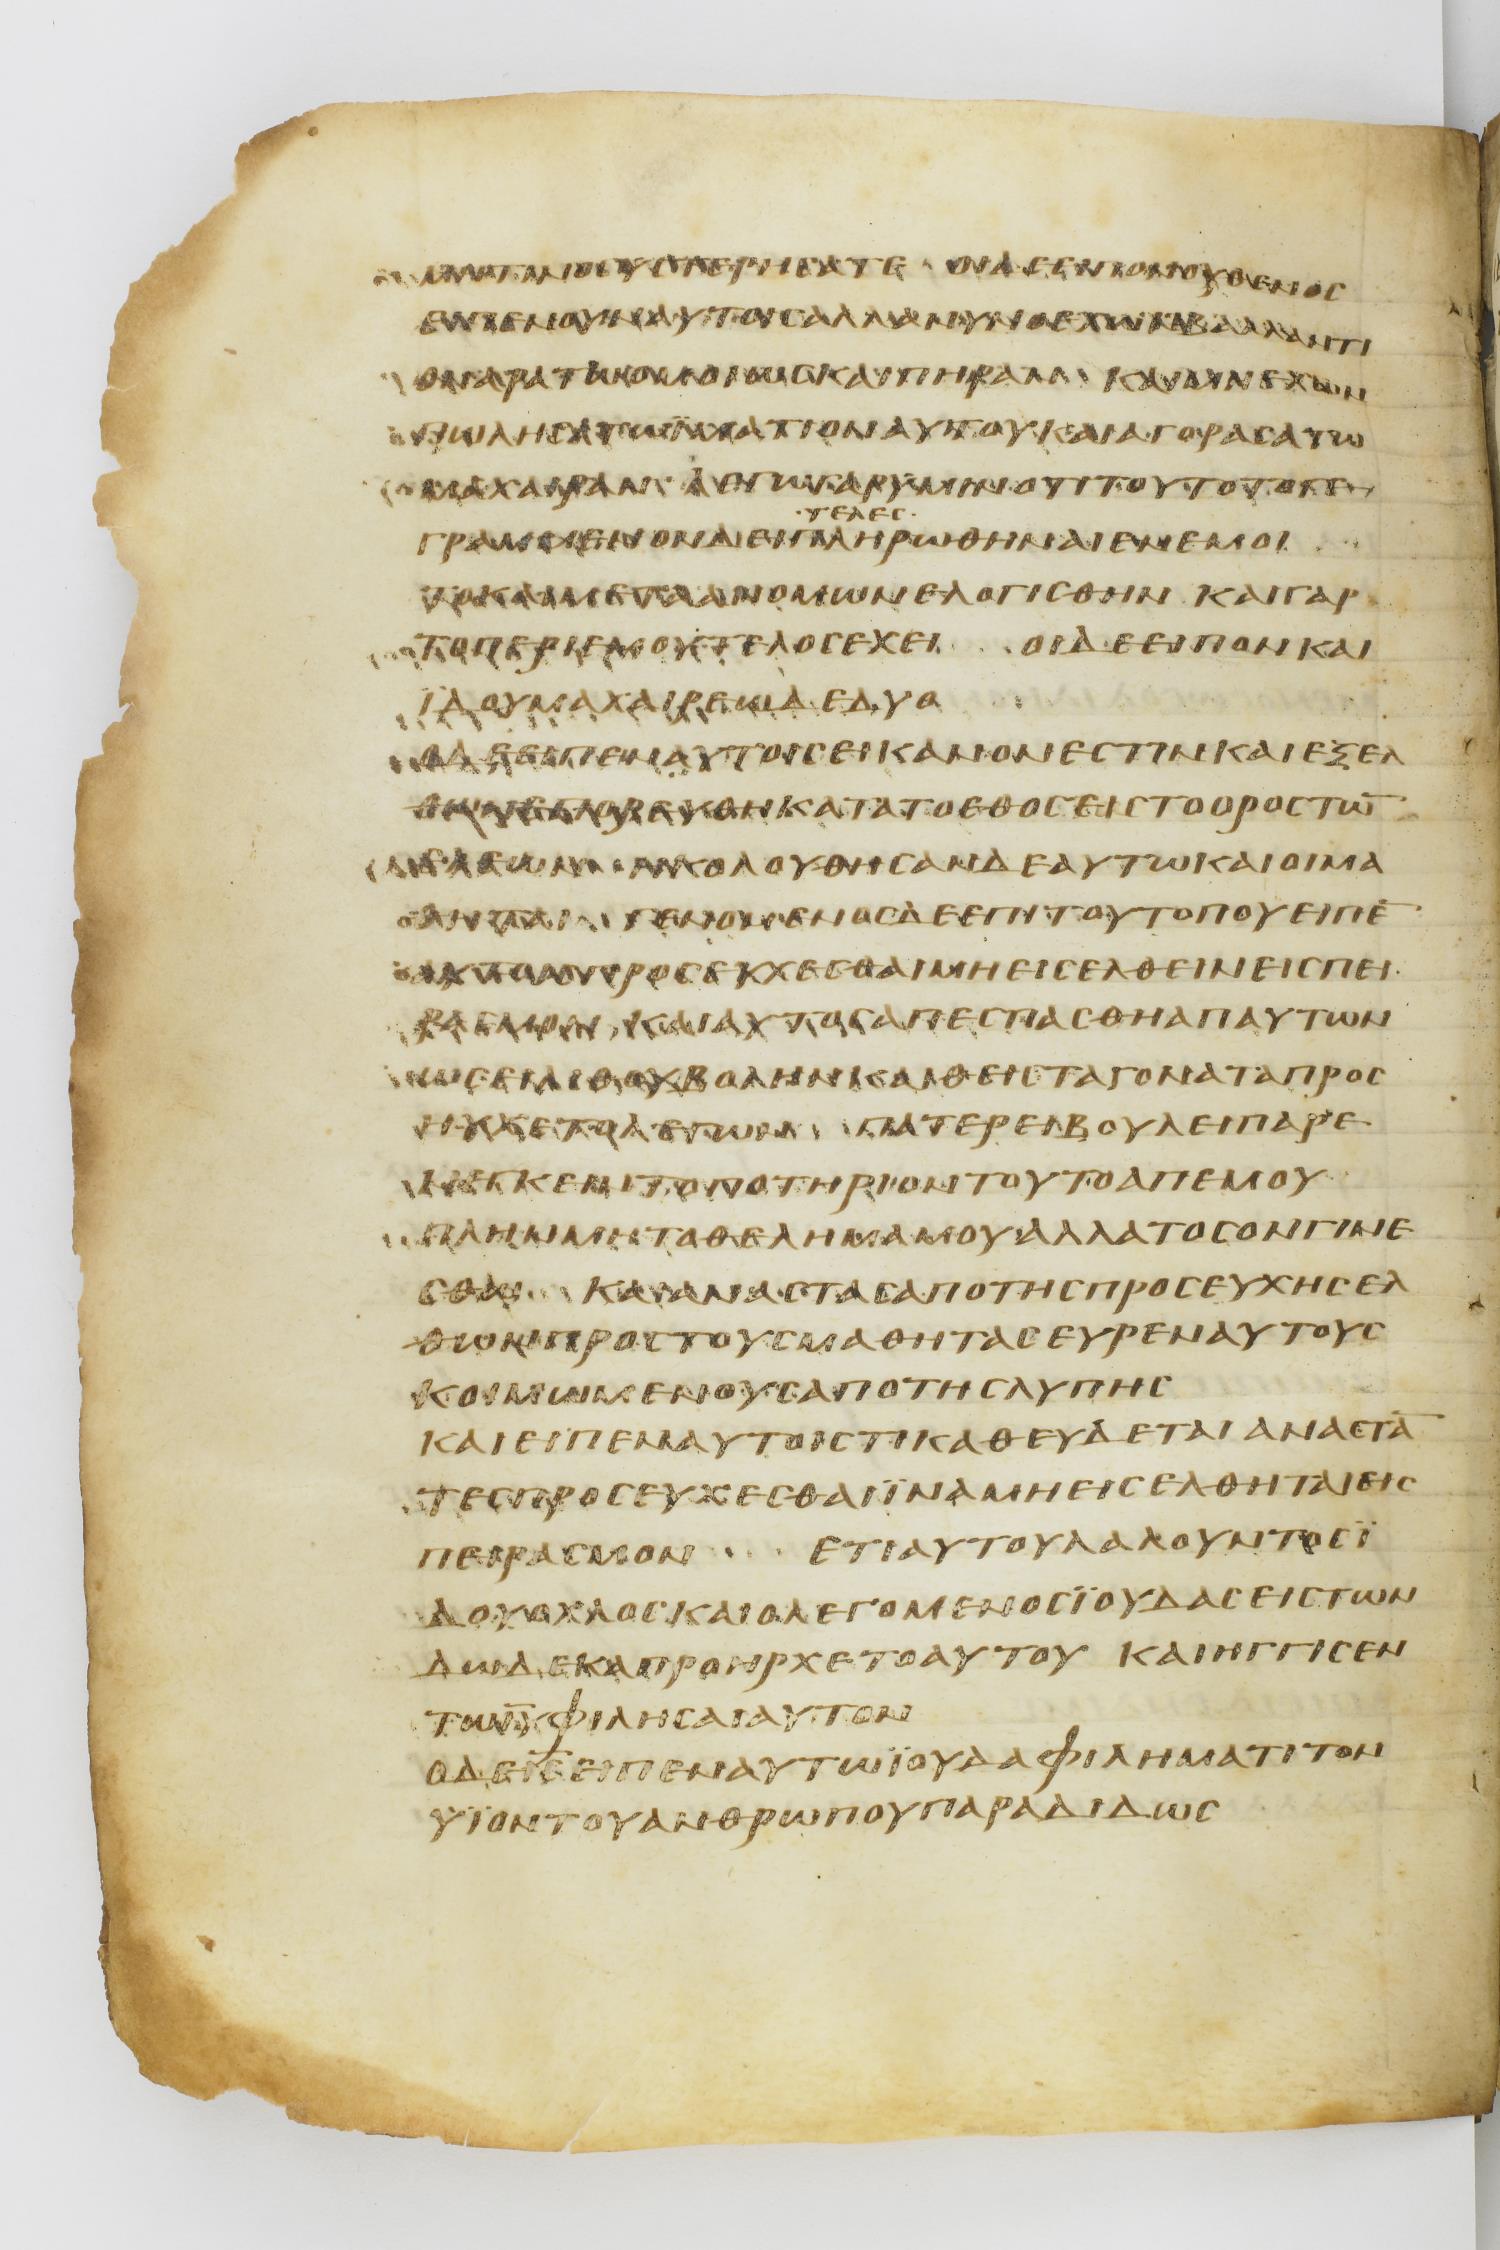 ΜΗΤΙΝΟCΥCΤΕΡΗCΑΤΕ ΟΙΔΕΕΙΠΟΝΟΥΘΕΝΟC
ΕΙΠΕΝΟΥΝΑΥΤΟΙCΑΛΛΑΝΥΝΟΕΧΩΝΒΑΛΛΑΝΤΙ
ΟΝΑΡΑΤΩΟΜΟΙΩCΚΑΙΠΗΡΑΝ ΚΑΙΟΜΗΕΧΩΝ
ΠΩΛΗCΑΤΩΪΜΑΤΙΟΝΑΥΤΟΥΚΑΙΑΓΟΡΑCΑΤΩ
ΜΑΧΑΙΡΑΝ ΛΕΓΩΓΑΡΥΜΙΝΟΤΙΤΟΥΤΟΤΟΓΕ
·ΤΕΛΕC·
ΓΡΑΜΜΕΝΟΝΔΕΙΠΛΗΡΩΘΗΝΑΙΕΝΕΜΟΙ
ΤΟΚΑΙΜΕΤΑΑΝΟΜΩΝΕΛΟΓΙCΘΗΝ ΚΑΙΓΑΡ
ΤΟΠΕΡΙΕΜΟΥΤΕΛΟCΕΧΕΙ ΟΙΔΕΕΙΠΟΝΚΑΙ
ΪΔΟΥΜΑΧΑΙΡΕΩΔΕΔΥΟ
ΟΔΕΕΙΠΕΝΑΥΤΟΙCΕΙΚΑΝΟΝΕCΤΙΝΚΑΙΕΞΕΛ
ΘΩΝΕΠΟΡΕΥΘΗΚΑΤΑΤΟΕΘΟCΕΙCΤΟΟΡΟCΤΩ̅
ΕΛΑΙΩΝ ΗΚΟΛΟΥΘΗCΑΝΔΕΑΥΤΩΚΑΙΟΙΜΑ
ΘΗΤΑΙ ΓΕΝΟΜΕΝΟCΔΕΕΠΙΤΟΥΤΟΠΟΥΕΙΠΕ̅
ΑΥΤΟΙCΠΡΟCΕΥΧΕCΘΑΙΜΗΕΙCΕΛΘΕΙΝΕΙCΠΕΙ
ΡΑCΜΟΝ ΚΑΙΑΥΤΟCΑΠΕCΠΑCΘΗΑΠΑΥΤΩΝ
ΩCΕΙΛΙΘΟΥΒΟΛΗΝΚΑΙΘΕΙCΤΑΓΟΝΑΤΑΠΡΟC
ΗΥΧΕΤΟΛΕΓΩΝ ΠΑΤΕΡΕΙΒΟΥΛΕΙΠΑΡΕ
ΝΕΓΚΕΙΝΤΟΠΟΤΗΡΙΟΝΤΟΥΤΟΑΠΕΜΟΥ
ΠΛΗΝΜΗΤΟΘΕΛΗΜΑΜΟΥΑΛΛΑΤΟCΟΝΓΙΝΕ
CΘΩ ΚΑΙΑΝΑCΤΑCΑΠΟΤΗCΠΡΟCΕΥΧΗCΕΛ
ΘΩΝΠΡΟCΤΟΥCΜΑΘΗΤΑCΕΥΡΕΝΑΥΤΟΥC
ΚΟΙΜΩΜΕΝΟΥCΑΠΟΤΗCΛΥΠΗC
ΚΑΙΕΙΠΕΝΑΥΤΟΙCΤΙΚΑΘΕΥΔΕΤΑΙΑΝΑCΤΑ̅
ΤΕCΠΡΟCΕΥΧΕCΘΑΙΪΝΑΜΗΕΙCΕΛΘΗΤΑΙΕΙC
ΠΕΙΡΑCΜΟΝ ΕΤΙΑΥΤΟΥΛΑΛΟΥΝΤΟCΪ
ΔΟΥΟΧΛΟCΚΑΙΟΛΕΓΟΜΕΝΟCΪΟΥΔΑCΕΙCΤΩΝ
ΔΩΔΕΚΑΠΡΟΗΡΧΕΤΟΑΥΤΟΥ ΚΑΙΗΓΓΙCΕΝ
ΤΩΙ̅Υ̅ΦΙΛΗCΑΙΑΥΤΟΝ
ΟΔΕΙ̅C̅ΕΙΠΕΝΑΥΤΩΪΟΥΔΑΦΙΛΗΜΑΤΙΤΟΝ
ΥΪΟΝΤΟΥΑΝΘΡΩΠΟΥΠΑΡΑΔΙΔΩC